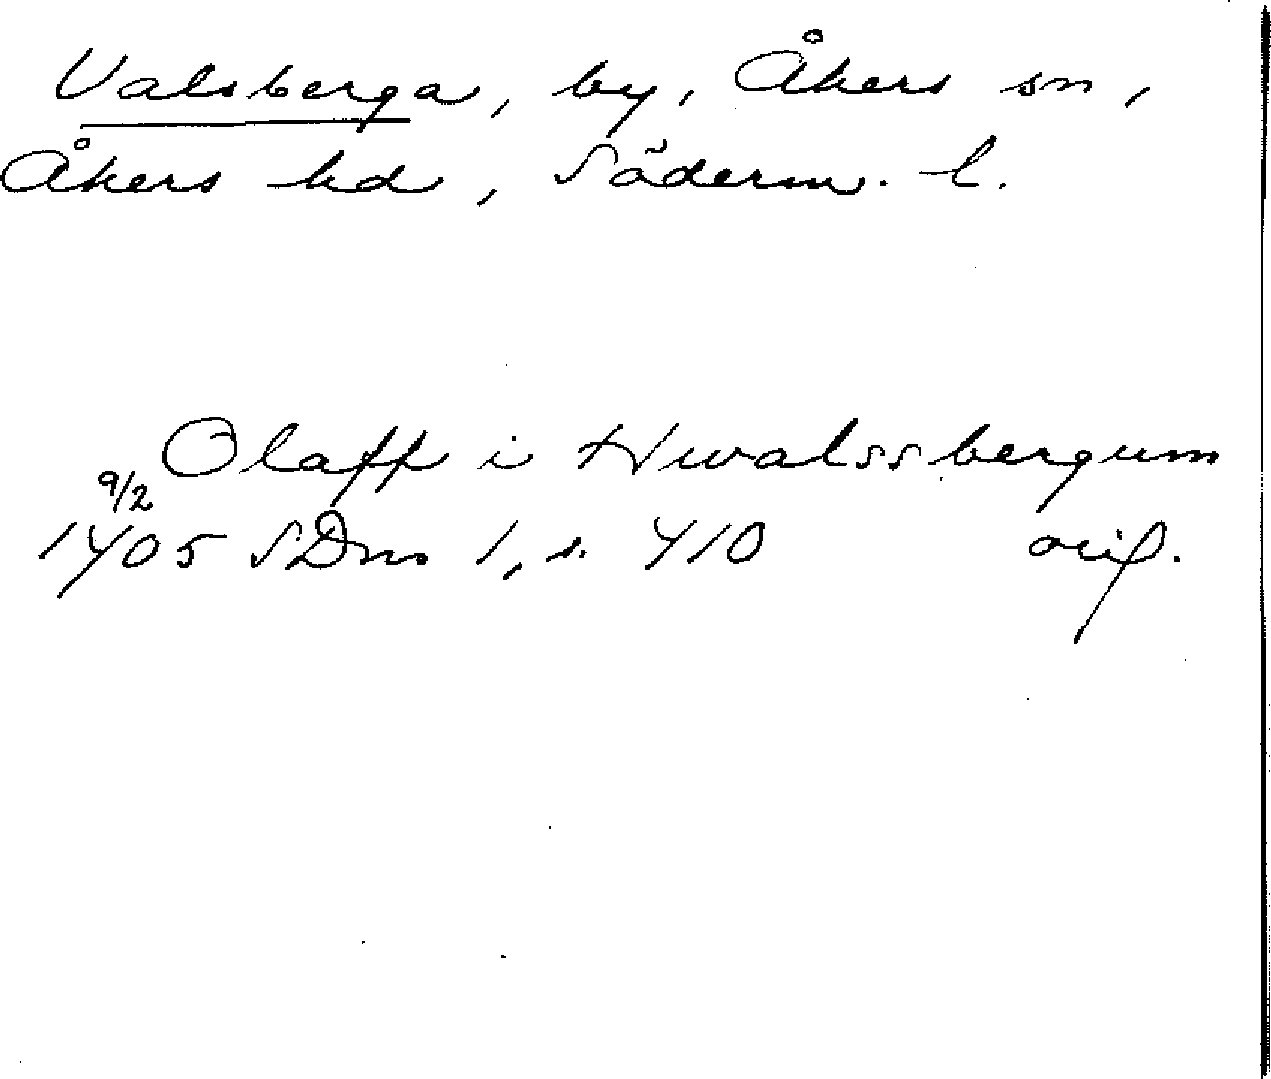 Valsberga, by, Åkers sn,
Åkers hd, Söderm. l.
Olaff i Hwalssbergum
9/2
1405 SDns 1, s. 410 orig.